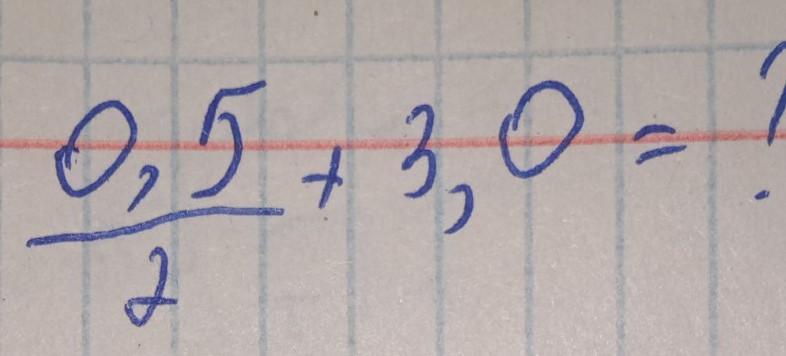 0,5
2
+ 3,0 = ?